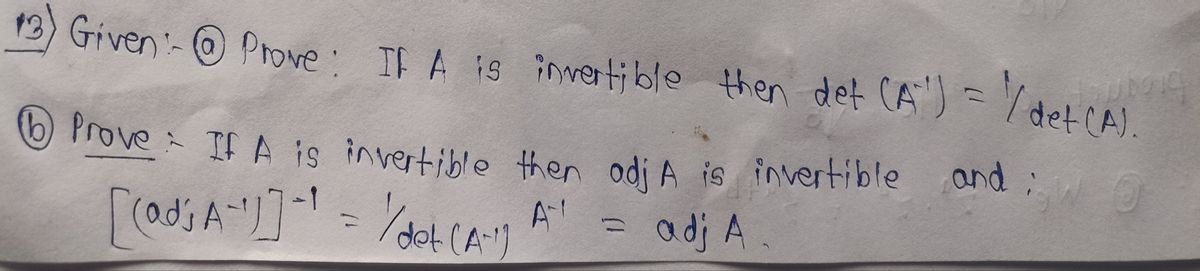 13) Given:- ⓐ Prove: If A is invertible then det (A⁻¹) = 1/det(A).
ⓑ Prove :- If A is invertible then adj A is invertible and :
[(adj A⁻¹)]⁻¹ = 1/det(A⁻¹) A⁻¹ = adj A.